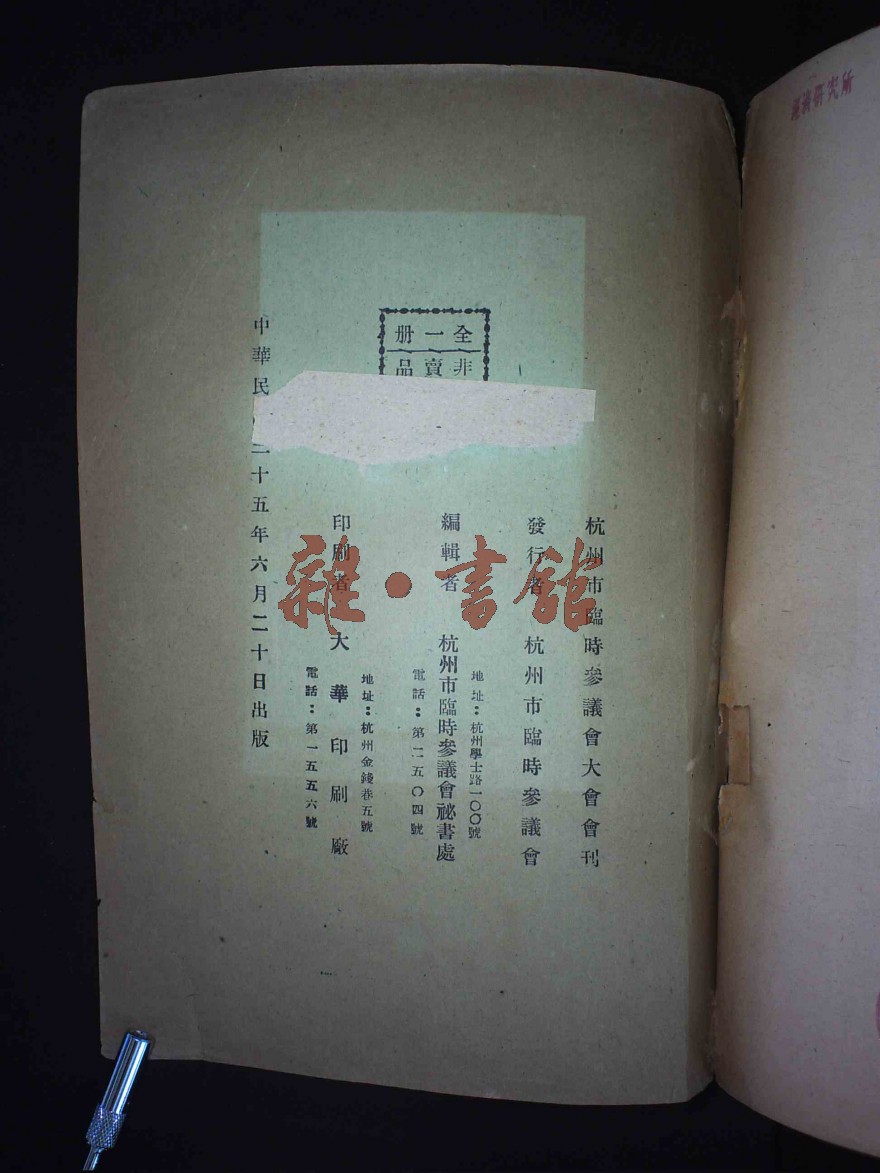 全一册
非賣品
杭州市臨時參議會大會會刊
發行者 杭州市臨時參議會
地址：杭州學士路一〇〇號
編輯者 杭州市臨時參議會祕書處
電話：第二五〇四號
地址：杭州金錢巷五號
印刷者 大華印刷廠
電話：第一五五六號
中華民 三十五年六月二十日出版
雜·書館
研究所